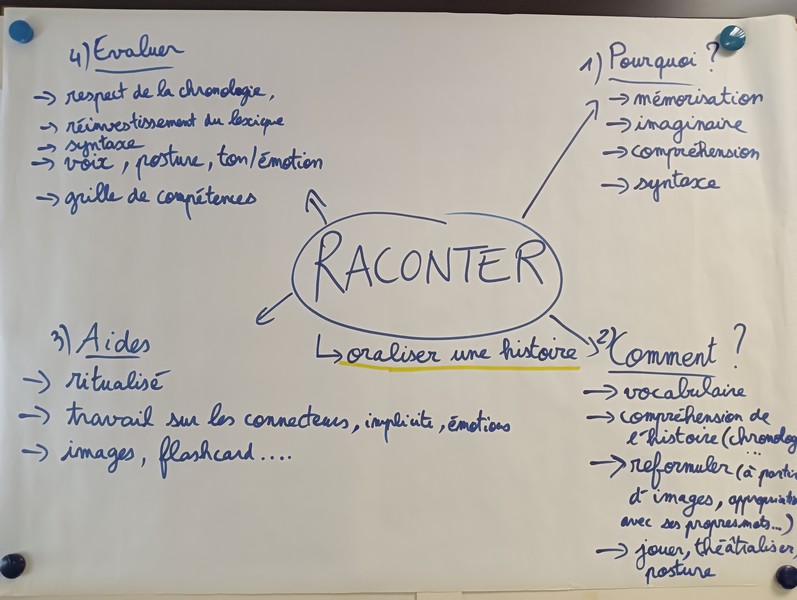 4) Evaluer
→ respect de la chronologie,
→ réinvestissement du lexique
→ syntaxe
→ voix, posture, ton/émotion
→ grille de compétences
1) Pourquoi ?
→ mémorisation
→ imaginaire
→ compréhension
→ syntaxe
RACONTER
↳ oraliser une histoire
3) Aides
→ ritualisé
→ travail sur les connecteurs, implicite, émotions
→ images, flashcard....
2) Comment ?
→ vocabulaire
→ compréhension de
l'histoire (chronolog
...
→ reformuler (à parti
d'images, appropriati
avec ses propres mots...)
→ jouer, théâtraliser,
posture